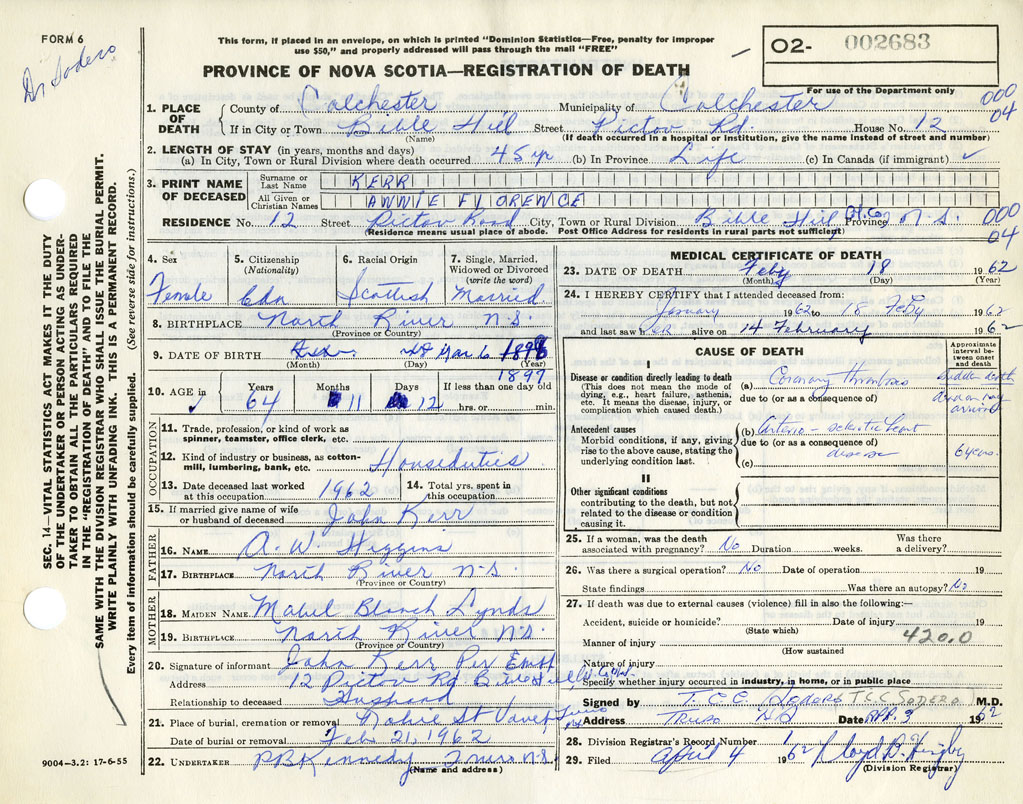 FORM 6
Dr Sodero
This form, if placed in an envelope, on which is printed "Dominion Statistics—Free, penalty for improper
use $50," and properly addressed will pass through the mail "FREE"
PROVINCE OF NOVA SCOTIA—REGISTRATION OF DEATH
O2- 002683
For use of the Department only
000
04
1. PLACE OF DEATH County of Colchester Municipality of Colchester
If in City or Town Bible Hill Street Pictou Rd. House No. 12
(Name) (If death occurred in a hospital or institution, give the name instead of street and number)
2. LENGTH OF STAY (in years, months and days)
(a) In City, Town or Rural Division where death occurred 45 yr (b) In Province Life (c) In Canada (if immigrant) ✓
3. PRINT NAME OF DECEASED Surname or Last Name KERR
All Given or Christian Names ANNIE FLORENCE
RESIDENCE No. 12 Street Pictou Road City, Town or Rural Division Bible Hill Col. Co. Province N.S.
(Residence means usual place of abode. Post Office Address for residents in rural parts not sufficient)
000
04
4. Sex Female
5. Citizenship (Nationality) Cdn
6. Racial Origin Scottish
7. Single, Married, Widowed or Divorced (write the word) Married
8. BIRTHPLACE North River N.S.
(Province or Country)
9. DATE OF BIRTH Mar 6 1898
(Month) (Day) (Year)
1897
10. AGE in Years 64 Months 11 Days 12 If less than one day old hrs. or min.
OCCUPATION
11. Trade, profession, or kind of work as
spinner, teamster, office clerk, etc.
12. Kind of industry or business, as cotton-
mill, lumbering, bank, etc. Houseduties
13. Date deceased last worked at this occupation 1962 14. Total yrs. spent in this occupation
15. If married give name of wife or husband of deceased John Kerr
FATHER
16. NAME A. W. Higgins
17. BIRTHPLACE North River N.S.
(Province or Country)
MOTHER
18. MAIDEN NAME Mabel Blanch Lynds
19. BIRTHPLACE North River N.S.
(Province or Country)
20. Signature of informant John Kerr Per
Address 12 Pictou Rd Bible Hill
Relationship to deceased Husband
21. Place of burial, cremation or removal
Date of burial or removal Feb. 21, 1962
22. UNDERTAKER P B Kennedy Truro N.S.
(Name and address)
MEDICAL CERTIFICATE OF DEATH
23. DATE OF DEATH Feby 18 1962
(Month) (Day) (Year)
24. I HEREBY CERTIFY that I attended deceased from:
January 1962 to 18 Feby 1962
and last saw her alive on 14 February 1962
CAUSE OF DEATH
Approximate interval between onset and death
I
Disease or condition directly leading to death
(This does not mean the mode of
dying, e.g., heart failure, asthenia,
etc. It means the disease, injury, or
complication which caused death.)
(a) Coronary thrombosis sudden death
due to (or as a consequence of)
on my arrival
Antecedent causes
Morbid conditions, if any, giving
rise to the above cause, stating the
underlying condition last.
(b) Arterio-sclerotic heart
due to (or as a consequence of)
disease 6 years
(c)
II
Other significant conditions
contributing to the death, but not
related to the disease or condition
causing it.
25. If a woman, was the death associated with pregnancy? No Duration weeks. Was there a delivery?
26. Was there a surgical operation? No Date of operation 19
State findings Was there an autopsy? No
27. If death was due to external causes (violence) fill in also the following:—
Accident, suicide or homicide? Date of injury 19
(State which)
420.0
Manner of injury
(How sustained
Nature of injury
Specify whether injury occurred in industry, in home, or in public place
Signed by T.C.C. Sodero T.C.C SODERO M.D.
Address TRURO NS Date APR. 3 1962
28. Division Registrar's Record Number 1
29. Filed April 4 1962 Lloyd B. Higby
(Division Registrar)
SEC. 14—VITAL STATISTICS ACT MAKES IT THE DUTY
OF THE UNDERTAKER OR PERSON ACTING AS UNDER-
TAKER TO OBTAIN ALL THE PARTICULARS REQUIRED
IN THE "REGISTRATION OF DEATH" AND TO FILE THE
SAME WITH THE DIVISION REGISTRAR WHO SHALL ISSUE THE BURIAL PERMIT.
WRITE PLAINLY WITH UNFADING INK. THIS IS A PERMANENT RECORD.
Every item of information should be carefully supplied. (See reverse side for instructions.)
9004-3.2: 17-6-55